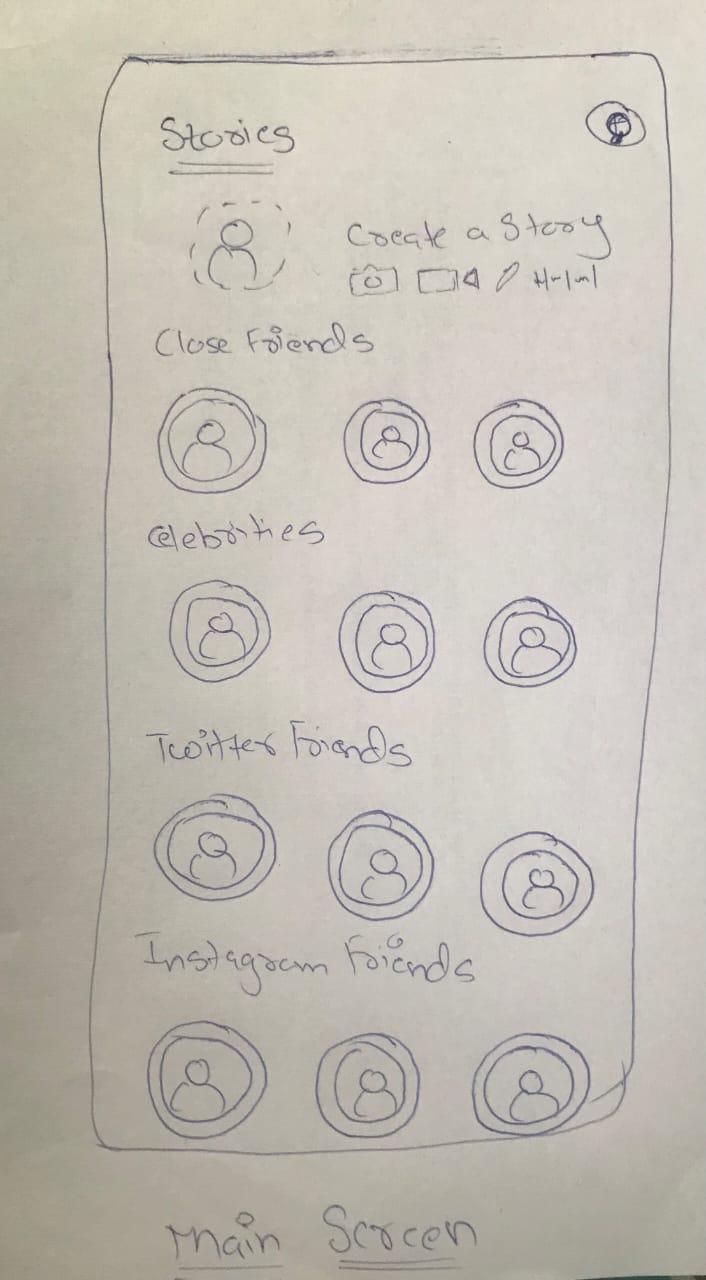 Stories
Create a Story
Close Friends
Celebrities
Twitter Friends
Instagram Friends
Main Screen